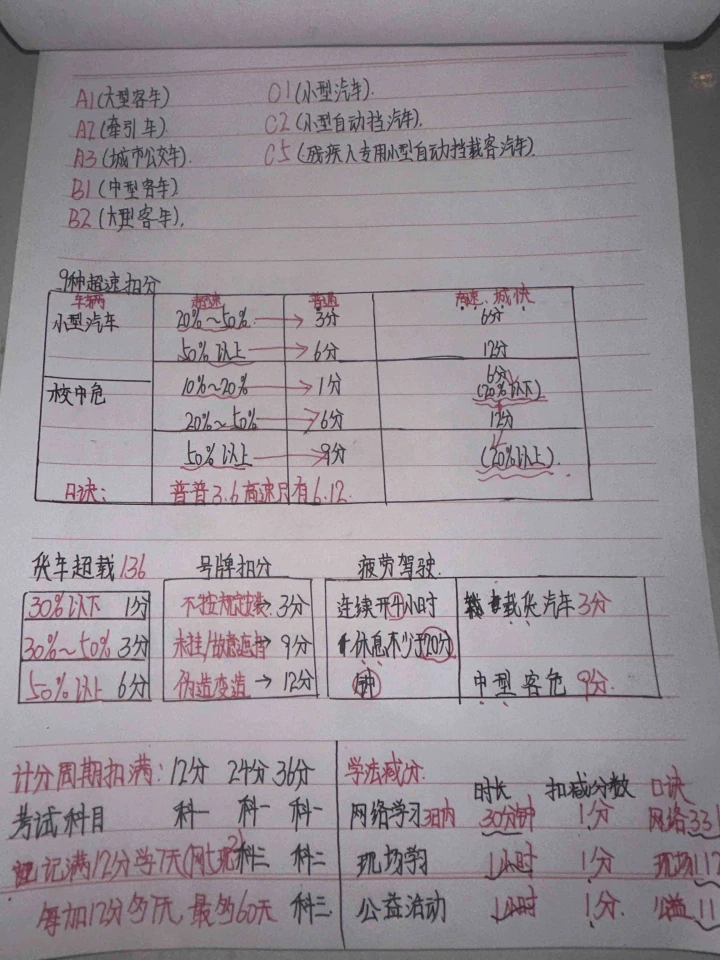 A1(大型客车) C1(小型汽车).
A2(牵引车) C2(小型自动挡汽车).
A3(城市公交车). C5(残疾人专用小型自动挡载客汽车).
B1(中型客车)
B2(大型客车).
9种超速扣分
车辆 超速 普通 高速、城快
小型汽车 20%~50% → 3分 6分
50%以上 → 6分 12分
校中危 10%~20% → 1分 6分
(20%以下)
20%~50% → 6分 12分
50%以上 → 9分 (20%以上)
口诀: 普普3.6高速只有6.12.
货车超载136 号牌扣分 疲劳驾驶.
30%以下 1分 不按规定安装→3分 连续开4小时 载货汽车3分
30%~50% 3分 未挂/故意遮挡→9分 休息不少于20分
50%以上 6分 伪造变造→12分 钟 中型客危 9分.
计分周期扣满: 12分 24分 36分 学法减分:
时长 扣减分数 口诀
考试科目 科一 科一 科一 网络学习3日内 30分钟 1分 网络331
记满12分学7天(网5现2) 科二 科二 现场学习 1小时 1分 现场11
每加12分多7天,最多60天 科三. 公益活动 1小时 1分. 公益.11